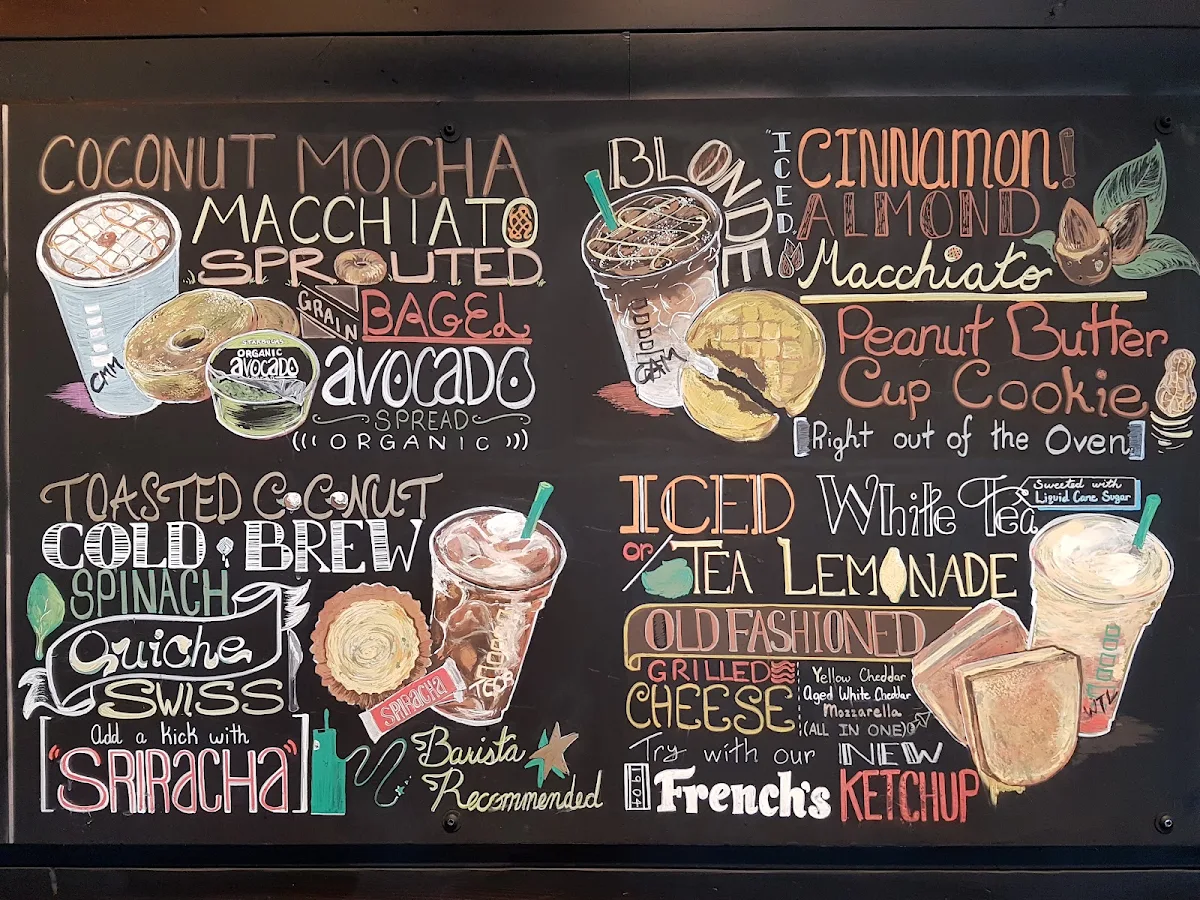 COCONUT MOCHA
MACCHIATO
SPROUTED
GRAIN BAGEL
AVOCADO
SPREAD
((( ORGANIC )))
CMM
STARBUCKS
ORGANIC
AVOCADO
BLONDE
"ICED" CINNAMON!
ALMOND
Macchiato
Peanut Butter
Cup Cookie
[Right out of the Oven]
TOASTED COCONUT
COLD BREW
SPINACH
Quiche
SWISS
Add a kick with
"SRIRACHA"
SRIRACHA
Barista
Recommended
ICED White Tea
Sweeted with
Liquid Cane Sugar
or / TEA LEMONADE
OLD FASHIONED
GRILLED
CHEESE
Yellow Cheddar
Aged White Cheddar
Mozzarella
(ALL IN ONE)
WTL
Try with our NEW
1904 French's KETCHUP